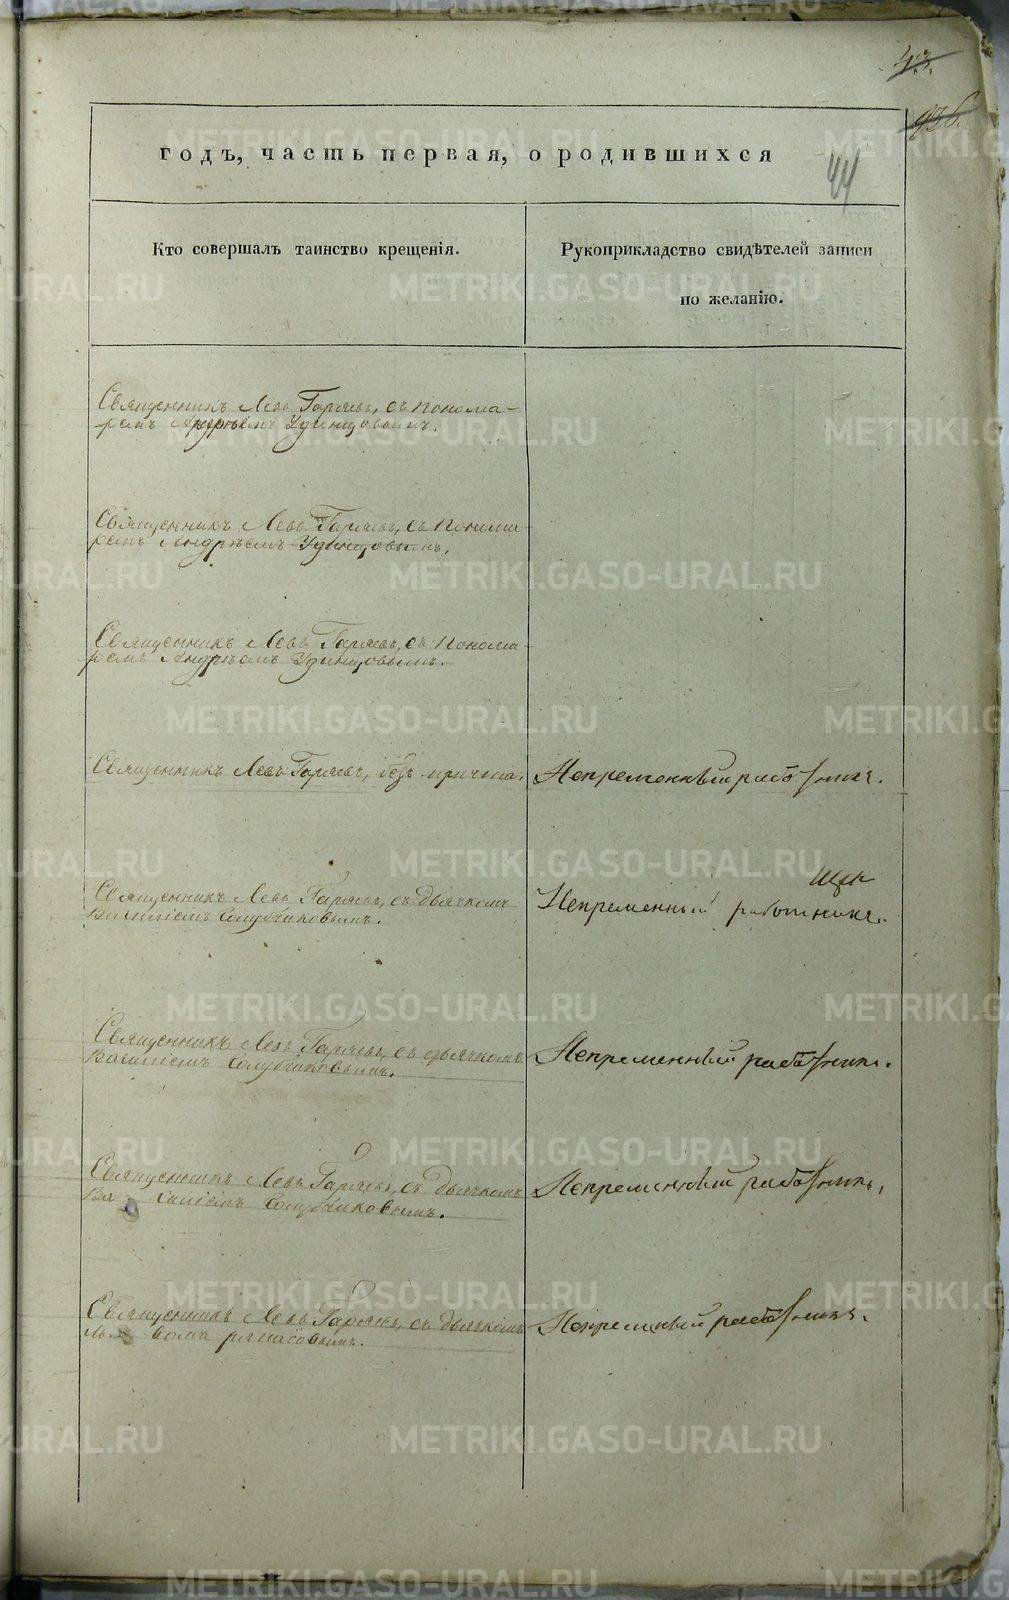 43.
936.
44
годъ, часть первая, о родившихся
Кто совершалъ таинство крещенія.
Рукоприкладство свидѣтелей записи
по желанію.
Священникъ Левъ Гаряевъ, съ понома-
ремъ Андреемъ Удинцовымъ.
Священникъ Левъ Гаряевъ, съ понома-
ремъ Андрѣемъ Удинцовымъ.
Священникъ Левъ Гаряевъ, съ понома-
ремъ Андрѣемъ Удинцовымъ.
Священникъ Левъ Гаряевъ, безъ причта.
Непременный работникъ.
Священникъ Левъ Гаряевъ, съ дьячкомъ
Василіемъ Голубчиковымъ.
Непременный работникъ.
Священникъ Левъ Гаряевъ, съ дьячкомъ
Василіемъ Голубчиковымъ.
Непременный работникъ.
Священникъ Левъ Гаряевъ, съ дьячкомъ
Василіемъ Голубчиковымъ.
Непременный работникъ,
Священникъ Левъ Гаряевъ, съ дьячкомъ
Непременный работникъ.
METRIKI.GASO-URAL.RU